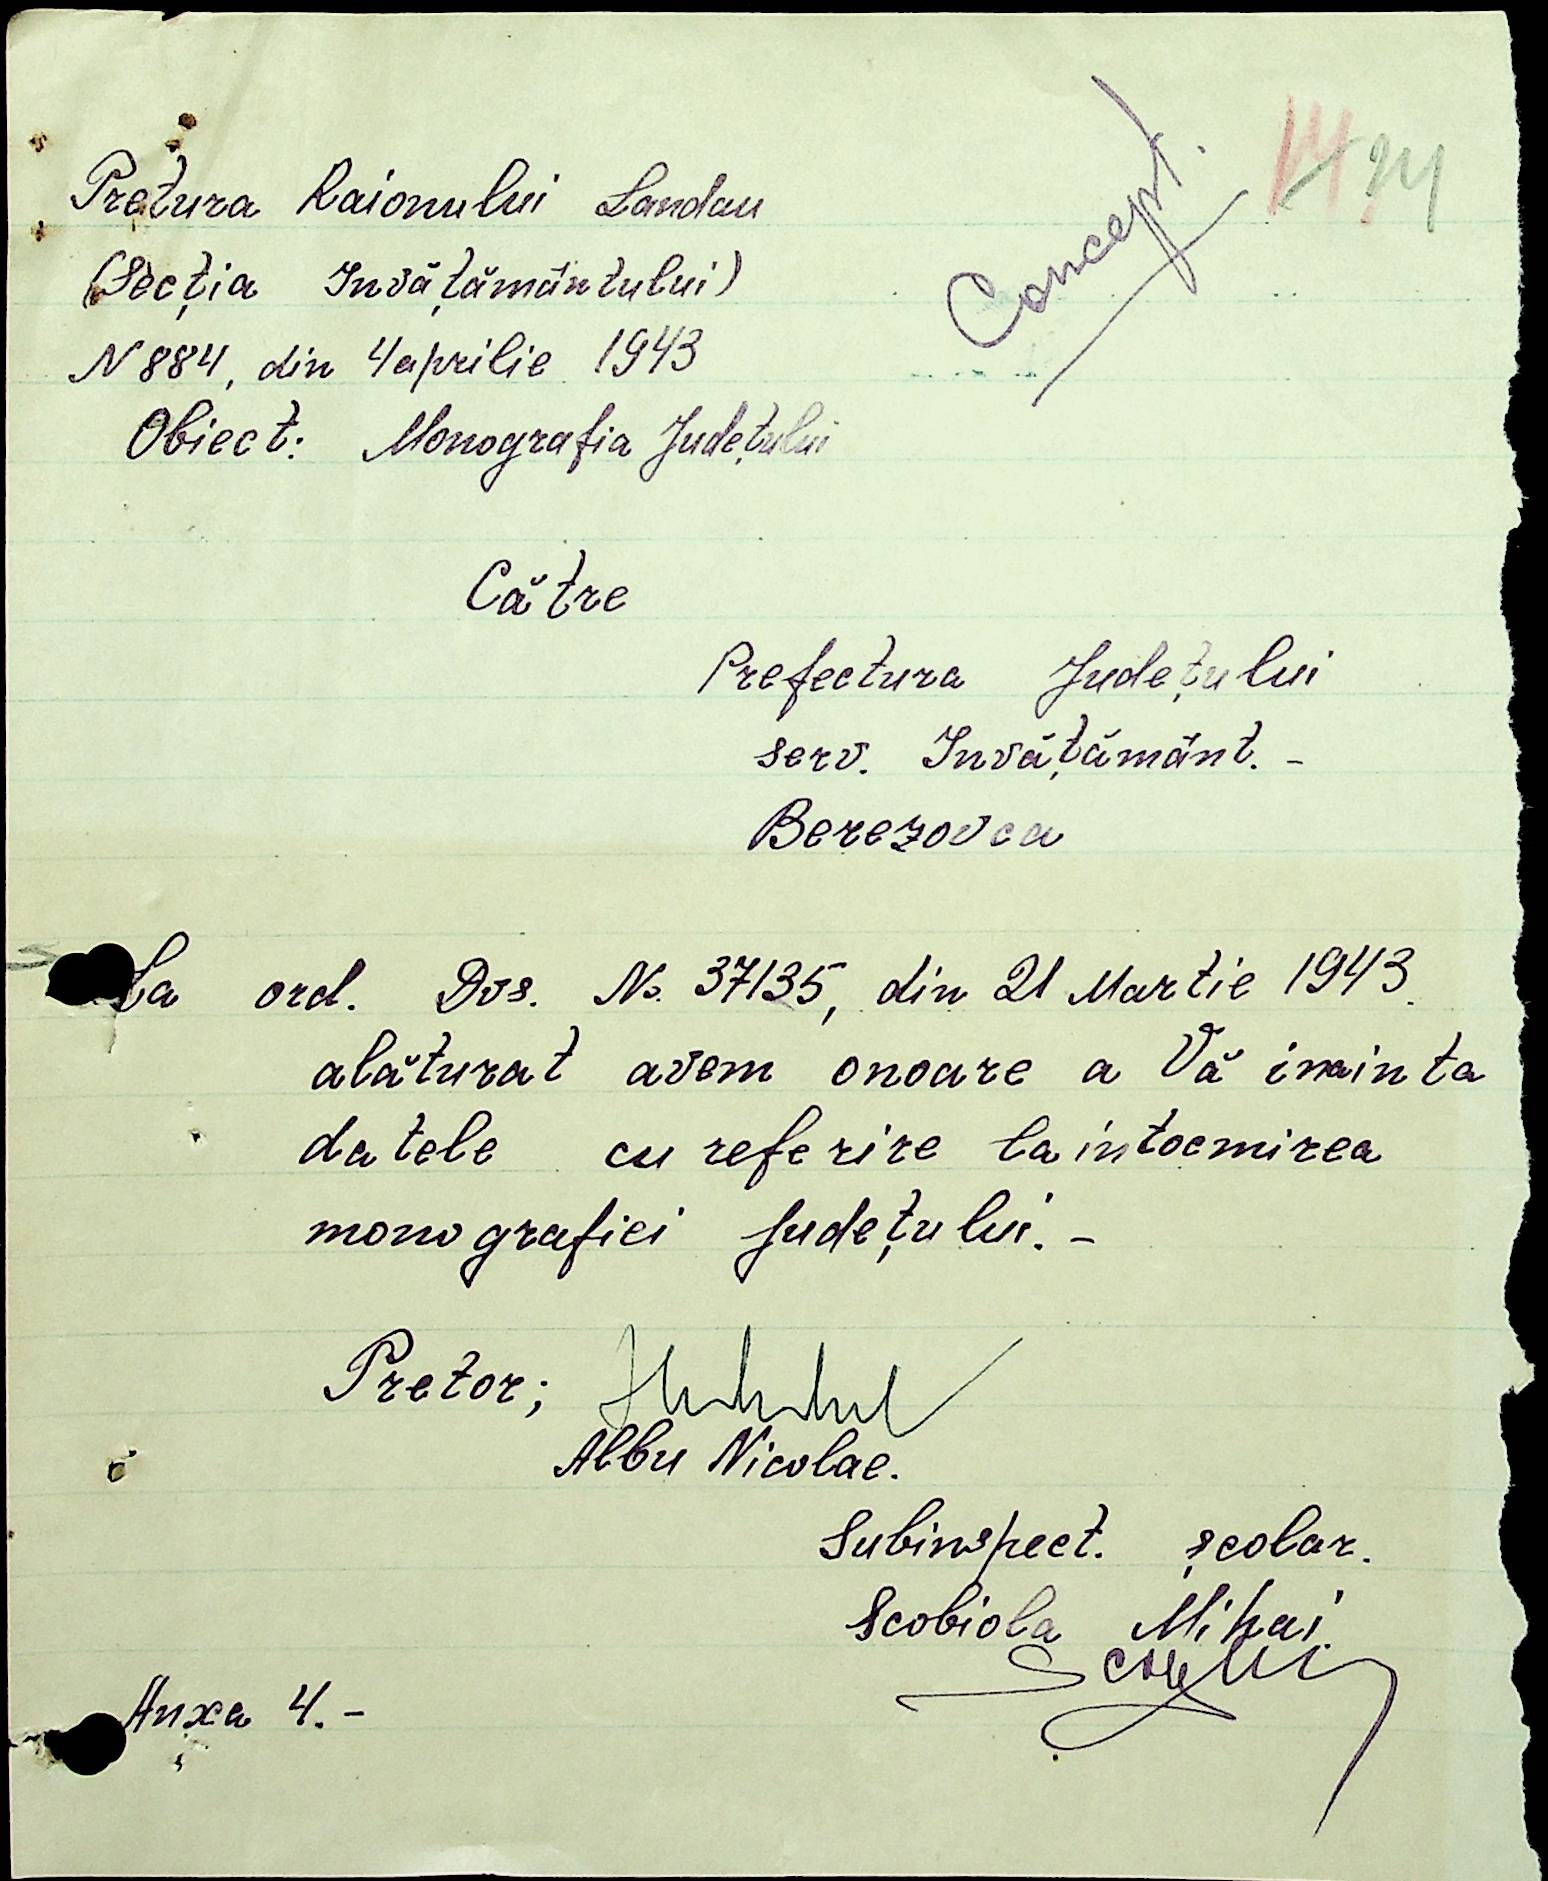 Concept.
Pretura Raionului Landau
(Secția Invățământului)
N 884, din 4 aprilie 1943
Obiect: Monografia Județului
Către
Prefectura Județului
serv. Invățământ. -
Berezovca
La ord. Dvs. No. 37135, din 21 Martie 1943
alăturat avem onoare a Vă inainta
datele cu referire la intocmirea
monografiei județului. -
Pretor;
Albu Nicolae.
Subinspect. școlar.
Scobiola Mihai.
Anxa 4. -